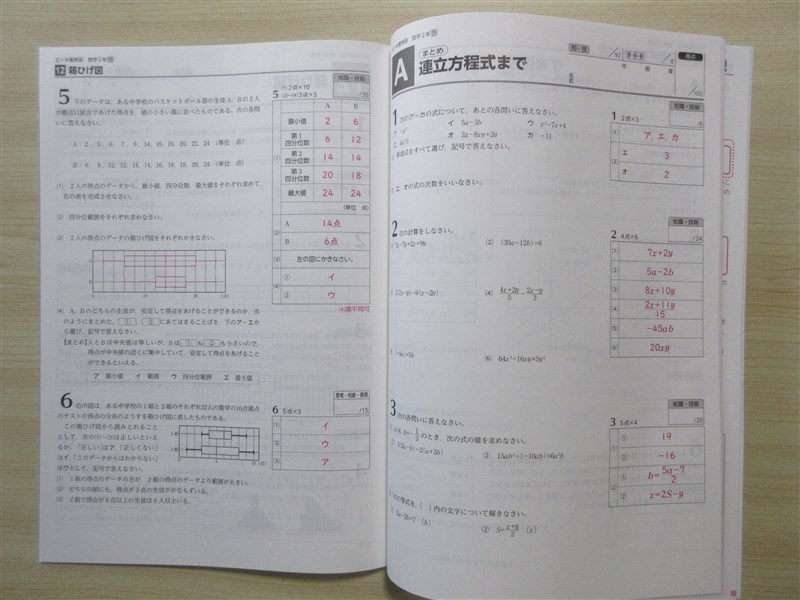 12 箱ひげ図
知識・技能
5 下のデータは、ある中学校のバスケットボール部の生徒A、Bの2人
が最近11試合であげた得点を、値の小さい順に並べたものである。次の各問
いに答えなさい。
A：2、5、6、7、9、14、16、16、20、22、24（単位 点）
(1) 2人の得点のデータから、最小値、四分位数、最大値をそれぞれ求めて、
右の表を完成させなさい。
(2) 四分位範囲をそれぞれ求めなさい。
(3) 2人の得点のデータの箱ひげ図をそれぞれかきなさい。
(4) A、Bのどちらの生徒が、安定して得点をあげることができるのか、次
のようにまとめた。①、②にあてはまることばを、下のア～エか
ら選び、記号で答えなさい。
【まとめ】AとBは中央値は等しいが、Bは①も②も小さいので、
得点が中央値の近くに集中していて、安定して得点をあげること
ができるといえる。
ア 最小値 イ 範囲 ウ 四分位範囲 エ 最大値
5
/35
A B
最小値 2 6
第1四分位数 6 12
第2四分位数 14 14
第3四分位数 20 18
最大値 24 24
（単位 点）
A 14点
B 6点
(3) 左の図にかきなさい。
(4) ① イ
② ウ
(4)順不同可
6 右の図は、ある中学校の1組と2組のそれぞれ32人の数学の10点満点
のテストの得点の分布のようすを箱ひげ図に表したものである。
この箱ひげ図から読みとれること
として、次の(1)～(3)は正しいといえ
るか。「正しい」はア、「正しくない」
はイ、「このデータからはわからない」
はウとして、記号で答えなさい。
(1) 1組の得点のデータの方が、2組の得点のデータより範囲が大きい。
(2) どちらの組にも、得点が5点の生徒がかならずいる。
(3) 2組で得点が8点以上の生徒は8人以上いる。
6 5点×3
/15
(1) イ
(2) ウ
(3) ア
A まとめ 連立方程式まで
年 組 番
名前
得点
/100
1 次のア～カの式について、あとの各問いに答えなさい。
イ 5a−3b ウ x²−7x+4
オ 3x−8xy+2y カ −11
エ、オの式の次数をいいなさい。
知識・技能
1 2点×3
(1) ア、エ、カ
エ 3
オ 2
2 次の計算をしなさい。
(2) (30a−12b)÷6
(4) (4x+2y)/5 − (2x−y)/3
(6) 64x²÷16xy×5y²
知識・技能
2 4点×6
/24
(1) 7x+2y
(2) 5a−2b
(3) 8x+10y
(4) (2x+11y)/15
(5) −45ab
(6) 20xy
3 次の各問いに答えなさい。
のとき、次の式の値を求めなさい。
② 15ab²÷(−10ab)×6a²b
の等式を、[ ]内の文字について解きなさい。
② S=(x+y)/2 [x]
知識・技能
3 5点×4
/20
① 19
② −16
① b=(5a−7)/2
② x=2S−y